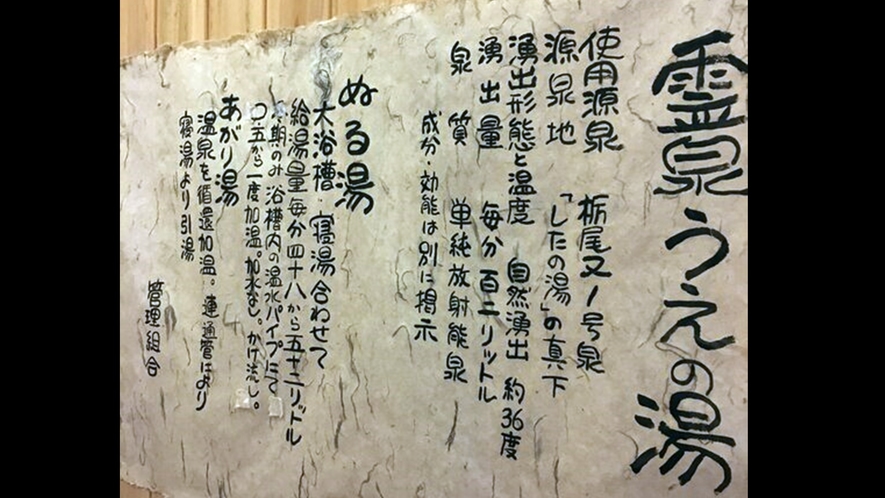 霊泉うえの湯
使用源泉 栃尾又1号泉
源泉地 「したの湯」の真下
湧出形態と温度 自然湧出 約36度
湧出量 毎分百二リットル
泉質 単純放射能泉
成分・効能は別に掲示
ぬる湯
大浴槽・寝湯合わせて
給湯量毎分四十八から五十二リットル
期のみ浴槽内の温水パイプにて
〇・五から一度加温。加水なし。かけ流し。
あがり湯
温泉を循還加温。連通管により
寝湯より引湯
管理組合